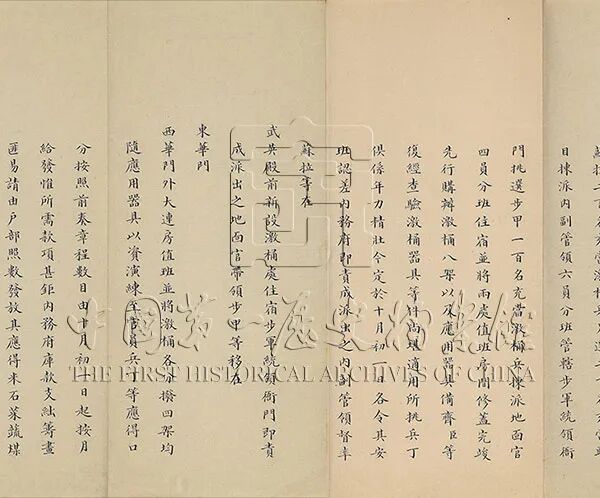 日揀派內副管領六員分班管轄步軍統領衙
門挑選步甲一百名充當激桶兵揀派地面官
四員分班住宿並將兩處值班房間修蓋完竣
先行購辦激桶八架以應用器具備齊臣等
復經查驗激桶器具等件尚堪適用所挑兵丁
俱係年力精壯令定於十月初一日各令其安
班認差內務府即責成派出之內副管領督率
蘇拉等在
武英殿前新設激桶處住宿步軍統領衙門即責
成派出之地面官帶領步甲等移在
東華門
西華門外大連房值班並將激桶各分撥四架均
隨應用器具以資演練至官員兵丁等應得口
分按照前奏章程數目由十月初一日起按月
給發惟所需款項甚鉅內務府庫款支絀籌畫
匪易請由戶部照數發放其應得米石菜蔬煤
中國第一歷史檔案館
THE FIRST HISTORICAL ARCHIVES OF CHINA